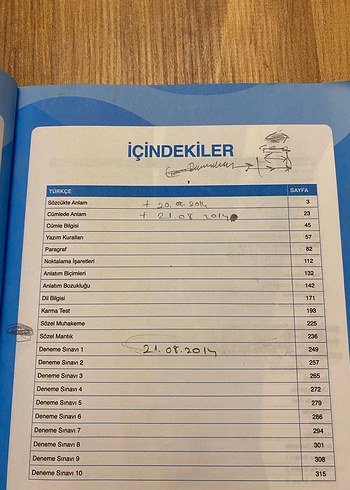 İÇİNDEKİLER
TÜRKÇE SAYFA
Sözcükte Anlam + 20.08.2014 3
Cümlede Anlam + 21.08.2014 23
Cümle Bilgisi 45
Yazım Kuralları 57
Paragraf 82
Noktalama İşaretleri 112
Anlatım Biçimleri 132
Anlatım Bozukluğu 142
Dil Bilgisi 171
Karma Test 193
Sözel Muhakeme 225
Sözel Mantık 236
Deneme Sınavı 1 21.08.2014 249
Deneme Sınavı 2 257
Deneme Sınavı 3 265
Deneme Sınavı 4 272
Deneme Sınavı 5 279
Deneme Sınavı 6 286
Deneme Sınavı 7 294
Deneme Sınavı 8 301
Deneme Sınavı 9 308
Deneme Sınavı 10 315